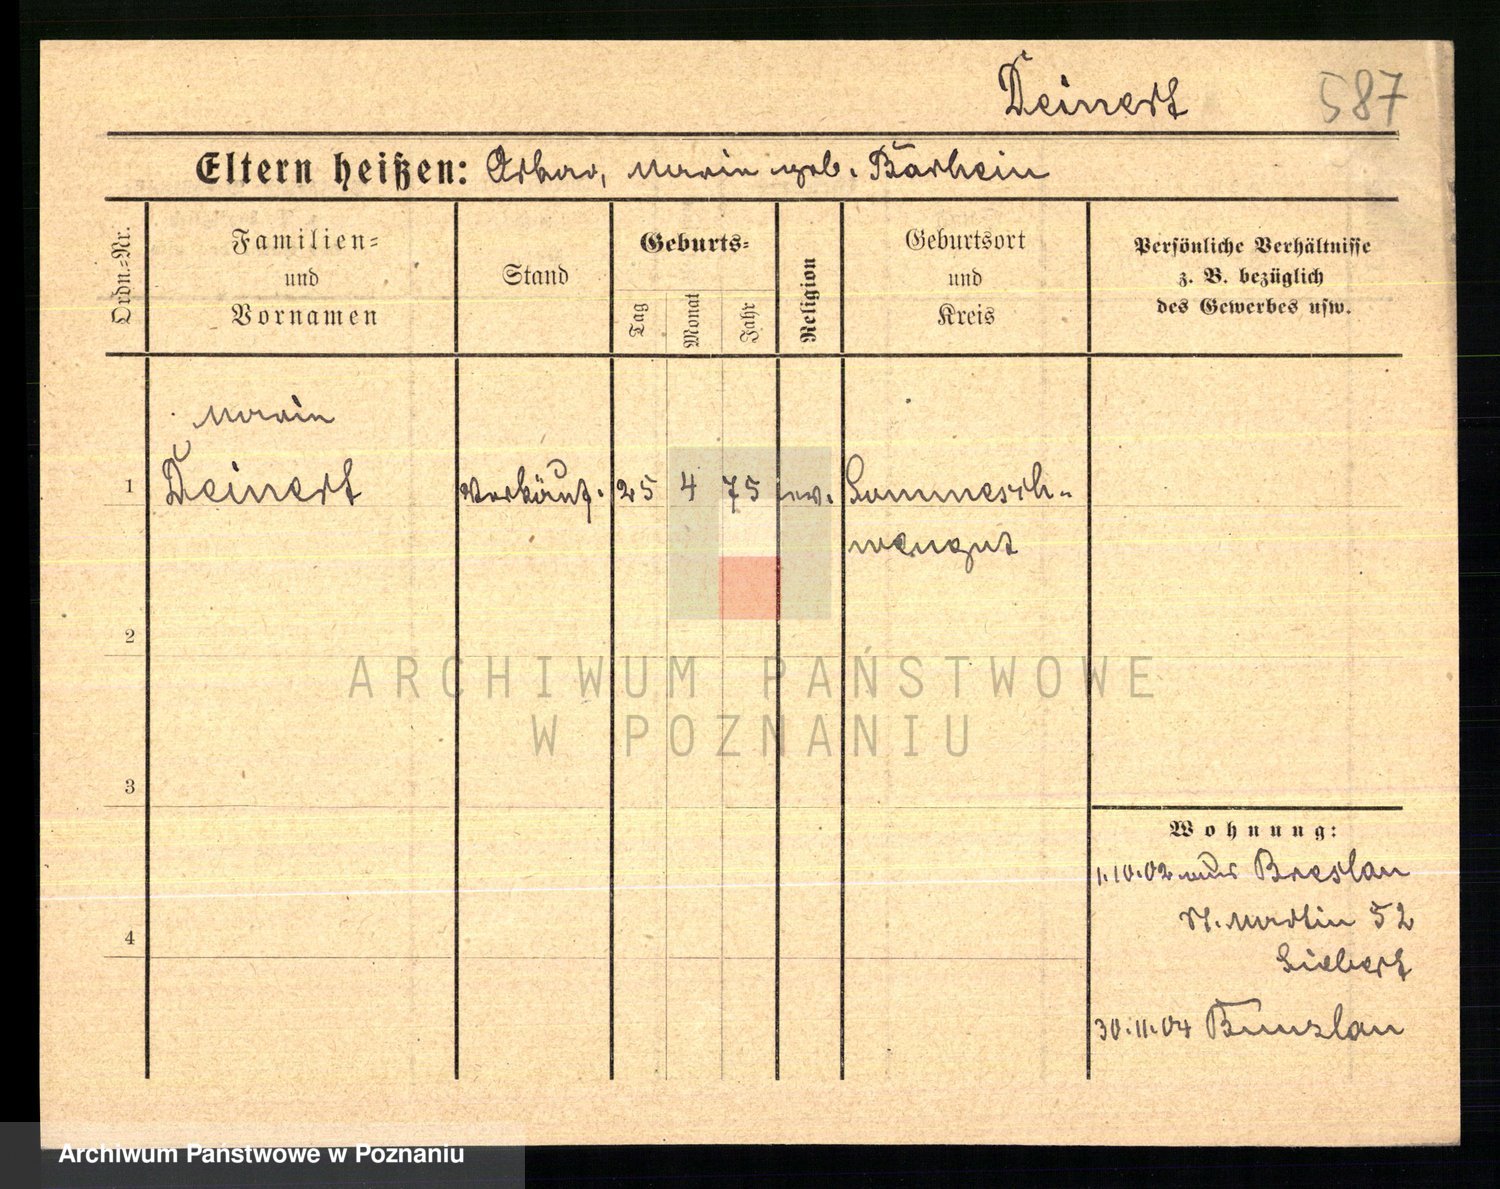 Deinert 587
Eltern heißen: Oskar, Marie geb. Bärhein
Ordn.-Nr.
Familien-
und
Vornamen
Stand
Geburts-
Tag
Monat
Jahr
Religion
Geburtsort
und
Kreis
Persönliche Verhältnisse
z. B. bezüglich
des Gewerbes usw.
Marie
1 Deinert Verkäuf. 25 4 75 ev.
2
3
4
Wohnung:
1.10.02 aus Breslau
St. Martin 52
Siebert
30.11.04 Bunzlau
ARCHIWUM PAŃSTWOWE
W POZNANIU
Archiwum Państwowe w Poznaniu